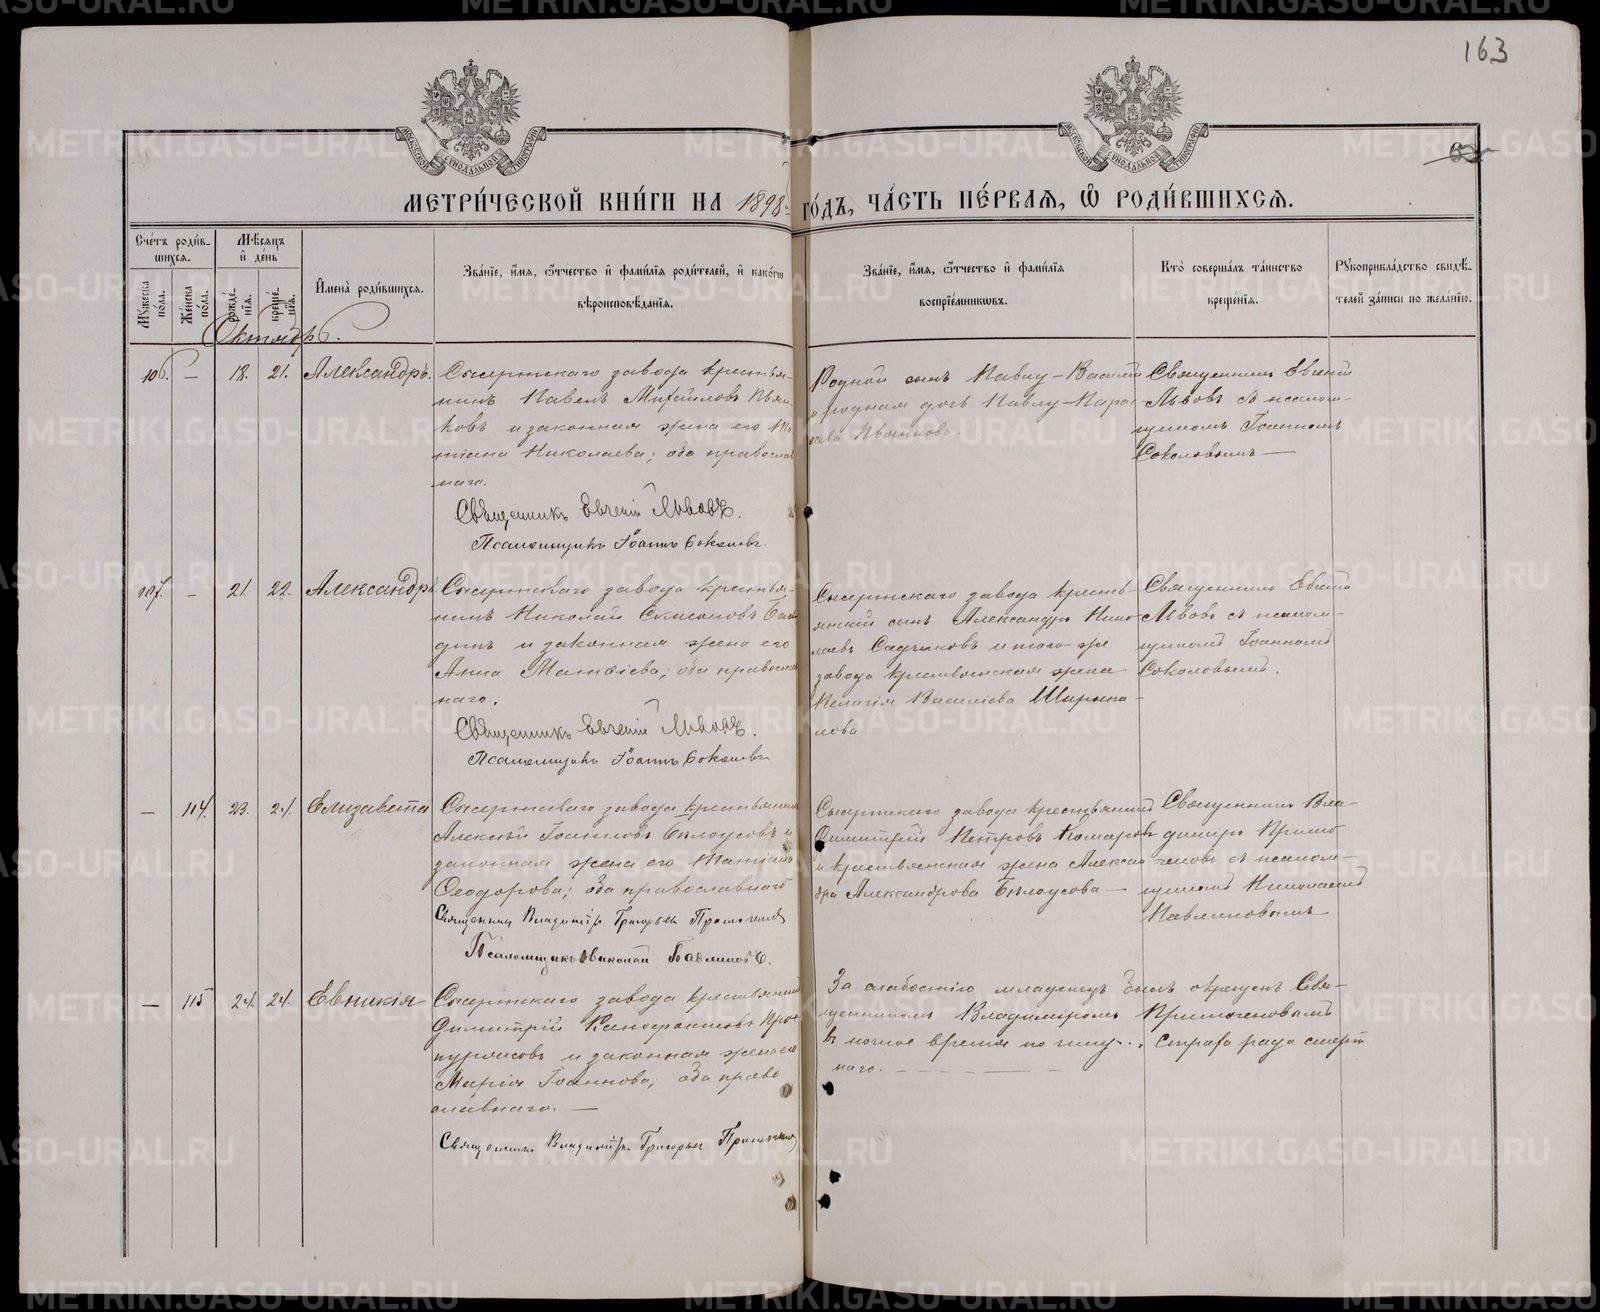 163
МЕТРИ́ЧЕСКОЙ КНИ́ГИ НА 1898 ГО́ДЪ, ЧА́СТЬ ПЕ́РВАЯ, Ѡ҆ РОДИ́ВШИХСЯ.
Сче́тъ роди́в-
шихся.
Мѣ́сяцъ
и҆ де́нь
Му́жеска по́ла.
Же́нска по́ла.
рожде́-
нїя.
креще́-
нїя.
И҆мена̀ роди́вшихся.
Зва́нїе, и҆́мя, ѻ҆́тчество и҆ фами́лїя роди́телей, и҆ како́гѡ
вѣроисповѣ́данїя.
Зва́нїе, и҆́мя, ѻ҆́тчество и҆ фами́лїя
воспрїе́мникѡвъ.
Кто̀ соверша́лъ та́инство
креще́нїя.
Рꙋкоприкла́дство свидѣ́-
телей за́писи по жела́нїю.
Октябрь.
106. — 18. 21. Александръ.
Сысертскаго завода крестья-
нинъ Павелъ Михаиловъ Пьян-
ковъ и законная жена его
Николаева; оба православ-
наго.
Священникъ Евгеній Львовъ.
Псаломщикъ Іоаннъ Соколовъ.
Родной сынъ Павлу - Василій
и родная дочь Павлу - Парас-
кева Пьянкова.
Священникъ Евгеній
Львовъ съ псалом-
щикомъ Іоанномъ
Соколовымъ —
107. — 21. 22. Александръ
Сысертскаго завода крестья-
нинъ Николай
и законная жена его
Анна Матѳіева; оба православ-
наго.
Священникъ Евгеній Львовъ.
Псаломщикъ Іоаннъ Соколовъ
Сысертскаго завода кресть-
янскій сынъ Александръ Нико-
лаевъ и того-же
завода крестьянская жена
Пелагія Василіева
Священникъ Евгеній
Львовъ съ псалом-
щикомъ Іоанномъ
Соколовымъ.
— 114. 23. 24. Елизавета
Сысертскаго завода крестьянинъ
Алексѣй Іоанновъ Бѣлоусовъ и
законная жена его Татіана
Ѳеодорова; оба православнаго
Священникъ Владиміръ Григорьевъ
Псаломщикъ Николай Павлиновъ.
Сысертскаго завода крестьянинъ
Димитрій Петровъ Комаровъ
и крестьянская жена Алексан-
дра Александрова Бѣлоусова —
Священникъ Вла-
диміръ
съ псалом-
щикомъ Николаемъ
Павлиновымъ
— 115 24. 24. Евникія
Сысертскаго завода крестьянинъ
Димитрій Ксенофонтовъ
и законная жена его
Марія Іоаннова; оба право-
славнаго. —
Священникъ Владиміръ Григорьевъ
За слабостію младенецъ былъ окрещенъ Свя-
щенникомъ Владиміромъ
въ ночное время по чину страха ради смерт-
наго.
METRIKI.GASO-URAL.RU